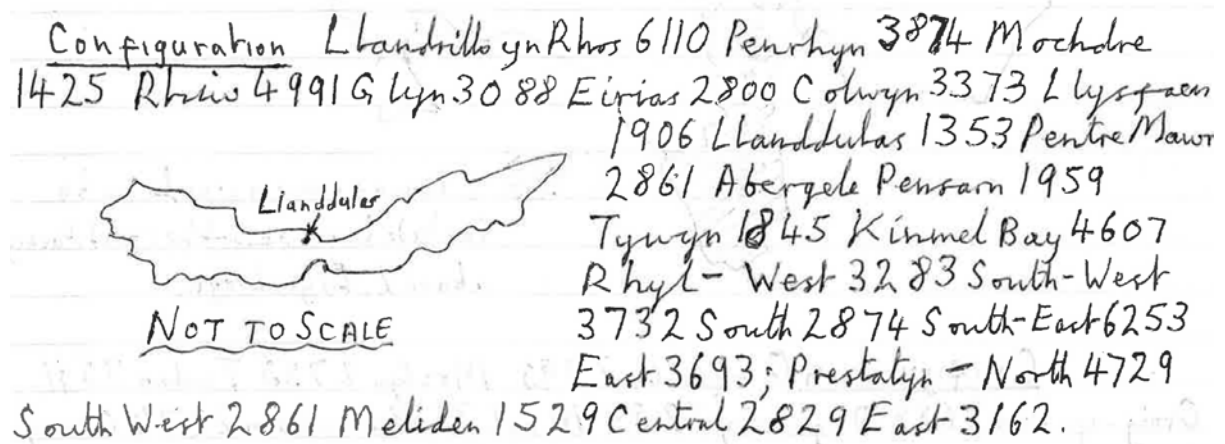 Configuration Llandrillo yn Rhos 6110 Penrhyn 3874 Mochdre
1425 Rhiw 4991 Glyn 3088 Eirias 2800 Colwyn 3373 Llysfaen
1906 Llanddulas 1353 Pentre Mawr
2861 Abergele Pensarn 1959
Llanddulas
Tywyn 1845 Kinmel Bay 4607
Rhyl - West 3283 South-West
NOT TO SCALE
3732 South 2874 South-East 6253
East 3693; Prestatyn - North 4729
South West 2861 Meliden 1529 Central 2829 East 3162.